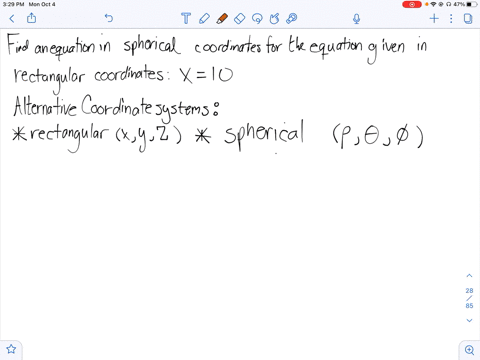 3:29 PM Mon Oct 4
47%
Find an equation in spherical coordinates for the equation given in
rectangular coordinates: x = 10
Alternative Coordinate systems:
* rectangular (x, y, z) * spherical (ρ, θ, φ)
28
/
85